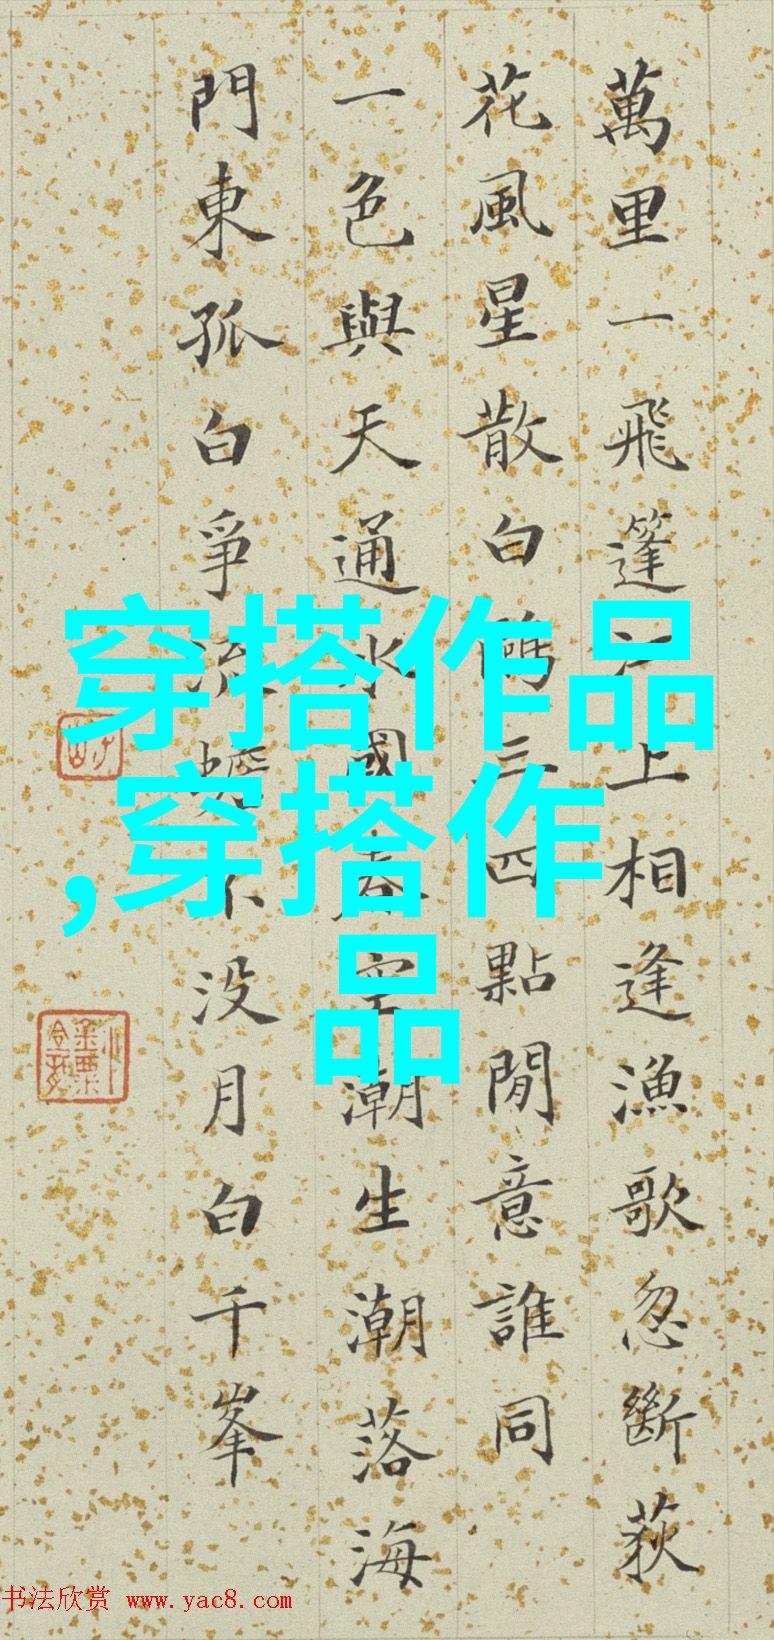 萬里一飛篷江上相逢漁歌忽斷荻
花風星散白鷗三四點閒意誰同
一色與天通水國春空潮生潮落海
門東孤白爭流蟾不没月白千峯
穿搭作品
,穿搭作
品
书法欣赏 www.yac8.com